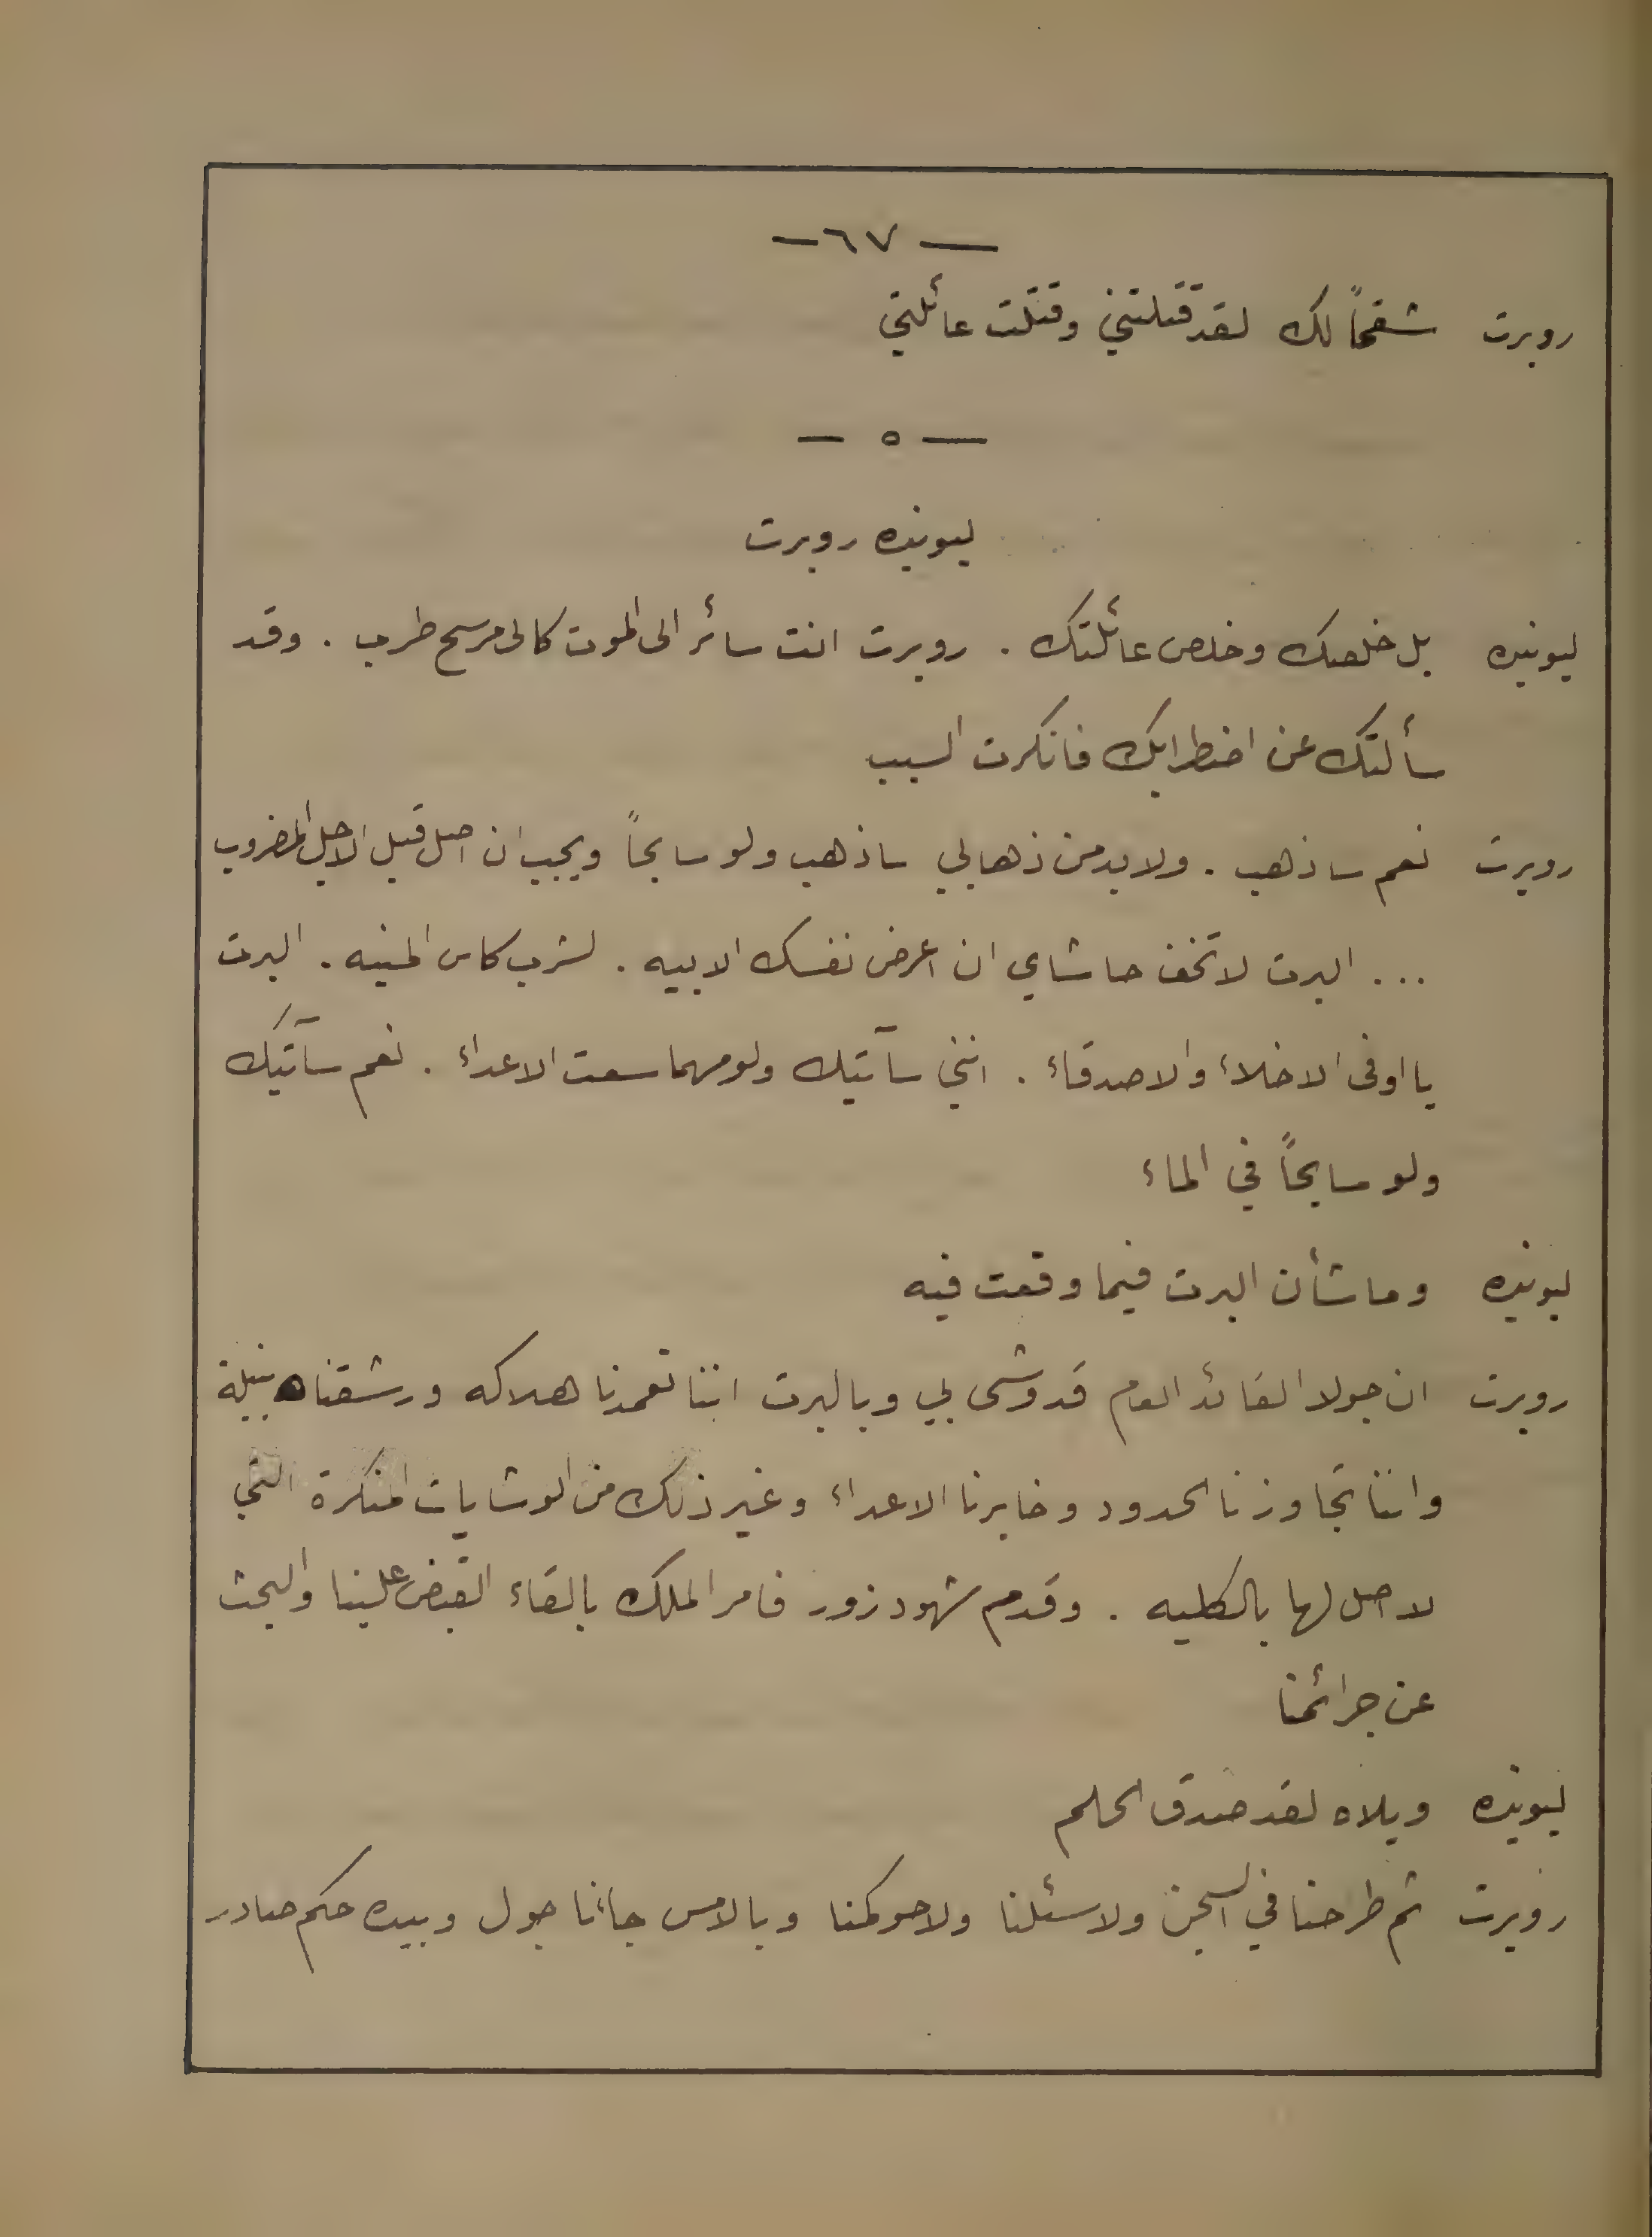 — ٦٧ —
روبرت شقحاً لك لقد قتلتني وقتلت عائلتي
— ٥ —
ليونيده روبرت
ليونيده بل خلصك وخلص عائلتك . روبرت انت سائر الى الموت كالى مرسح طرب . وقد
سألتك عن اضطرابك فانكرت السبب
روبرت نعم ساذهب . ولابد من ذهابي ساذهب ولو سابحاً ويجب ان اصل قبل الاجل المضروب
... البرت لا تخف حاشاي ان اعرض نفسك الابيه . لشرب كاس المنيه . البرت
يا اوفى الاخلاء والاصدقاء . انني سآتيك ولو مهما سعت الاعداء . نعم سآتيك
ولو سابحاً في الماء
ليونيده وما شأن البرت فيما وقعت فيه
روبرت ان جولا القائد العام قد وشى بي وبالبرت اننا تعمدنا هلاكه ورشقناه بنبلة
واننا تجاوزنا الحدود وخابرنا الاعداء وغير ذلك من الوشايات المنكرة التي
لا اصل لها بالكليه . وقدم شهود زور فامر الملك بالقاء القبض علينا والبحث
عن جرائمنا
ليونيده ويلاه لقد صدق الحلم
روبرت ثم طرحنا في السجن ولا سئلنا ولا حوكمنا وبالامس جاءنا جول وبيده حكم صادر